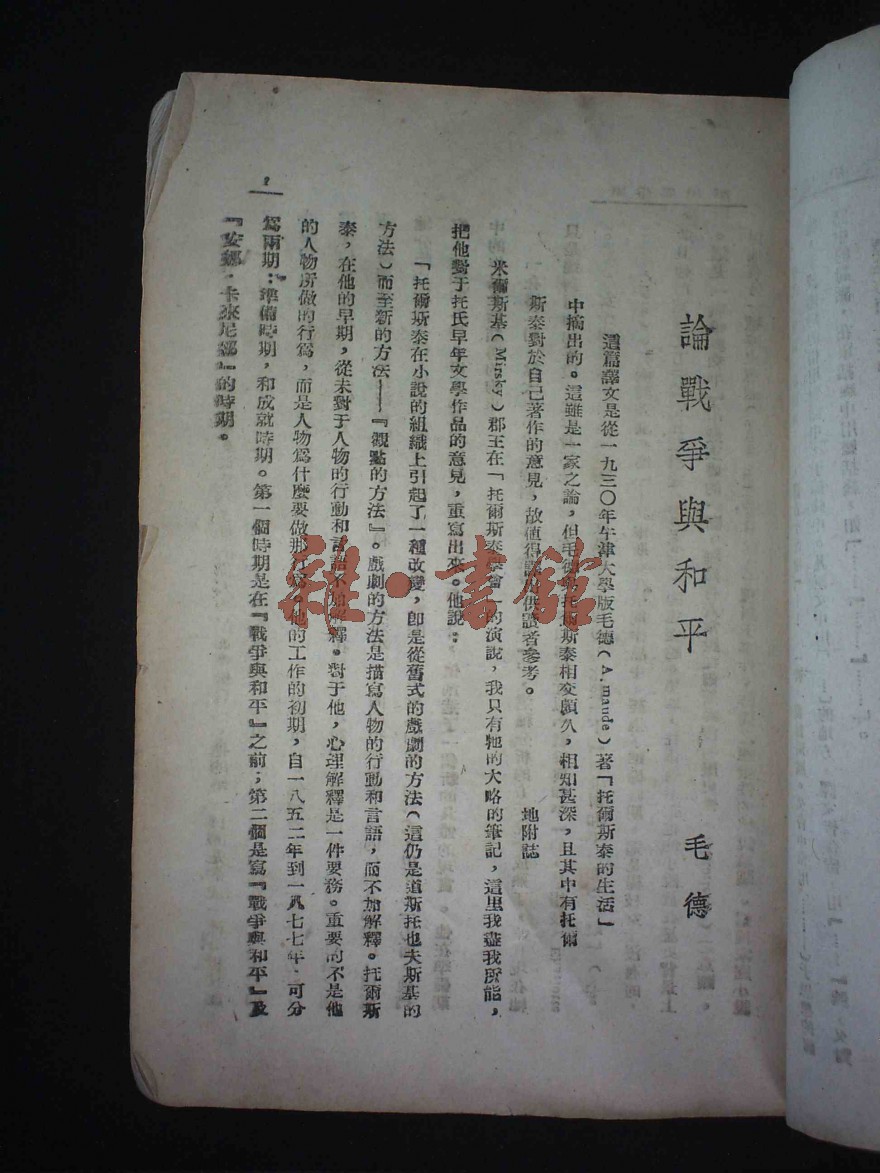 論戰爭與和平
毛德
這篇譯文是從一九三〇年牛津大學版毛德(A. maude)著「托爾斯泰的生活」
中摘出的。這雖是一家之論，但毛德與托爾斯泰相交頗久，相知甚深，且其中有托爾
斯泰對於自己著作的意見，故值得譯出供讀者參考。
地附誌
米爾斯基(Mirsky)郡王在「托爾斯泰學會」的演說，我只有牠的大略的筆記，這里我盡我所能，
把他對于托氏早年文學作品的意見，重寫出來。他說：
「托爾斯泰在小說的組織上引起了一種改變，卽是從舊式的戲劇的方法(這仍是道斯托也夫斯基的
方法)而至新的方法——『觀點的方法』。戲劇的方法是描寫人物的行動和言語，而不加解釋。托爾斯
泰，在他的早期，從未對于人物的行動和言語不加解釋。對于他，心理解釋是一件要務。重要的不是他
的人物所做的行爲，而是人物爲什麼要做那行爲。他的工作的初期，自一八五二年到一八七七年，可分
爲兩期：準備時期，和成就時期。第一個時期是在『戰爭與和平』之前；第二個是寫『戰爭與和平』及
『安娜·卡來尼娜』的時期。
2
雜·書館